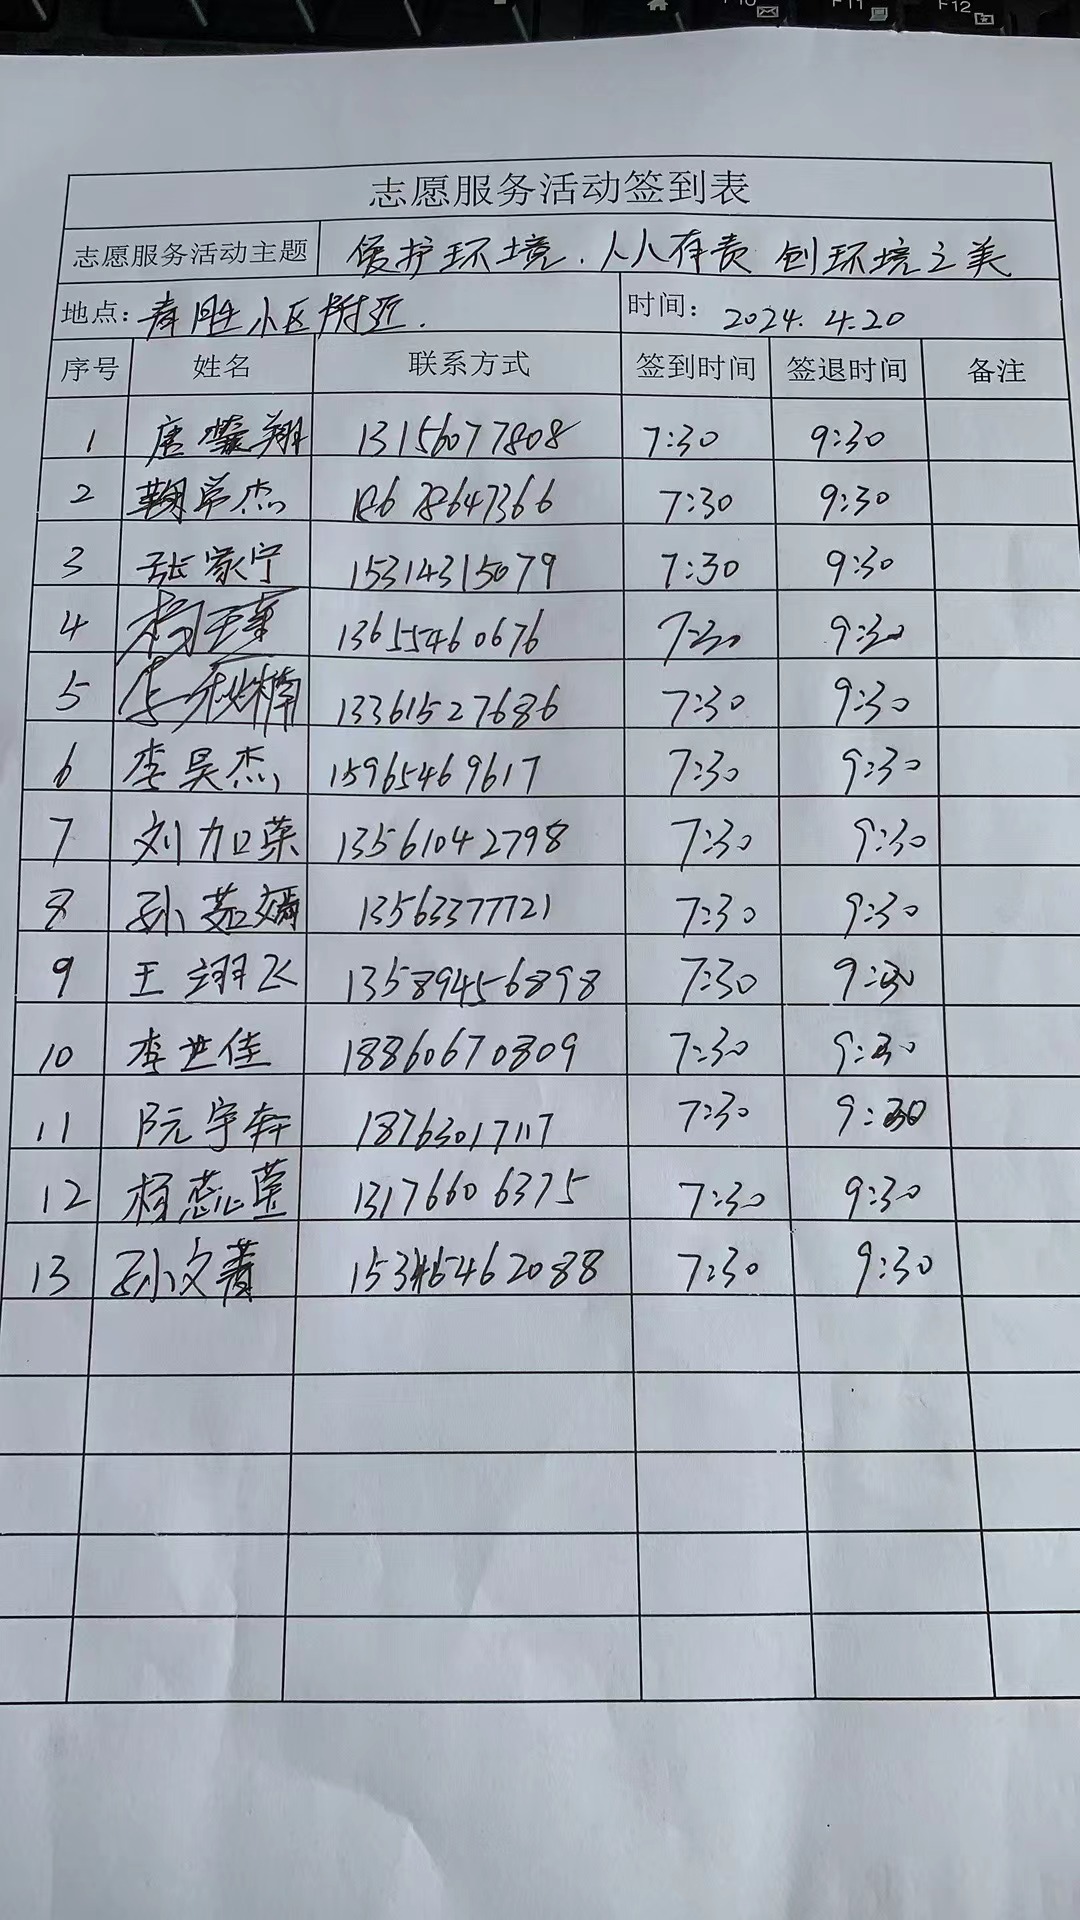 F10 F11 F12
志愿服务活动签到表
志愿服务活动主题 爱护环境.人人有责 创环境之美
地点: 青胜小区附近. 时间: 2024.4.20
序号 姓名 联系方式 签到时间 签退时间 备注
1 唐馨翔 13156077808 7:30 9:30
2 鞠学杰 18678647366 7:30 9:30
3 张家宁 15314315079 7:30 9:30
4 13655460676 7:30 9:30
5 13361527686 7:30 9:30
6 李昊杰 15965469617 7:30 9:30
7 刘加荣 13561042798 7:30 9:30
8 孙茹嫣 13563377721 7:30 9:30
9 王翊飞 13589456898 7:30 9:30
10 李世佳 18860670809 7:30 9:30
11 阮宇轩 18763017117 7:30 9:30
12 杨蕊莹 13176606375 7:30 9:30
13 孙文菁 7:30 9:30